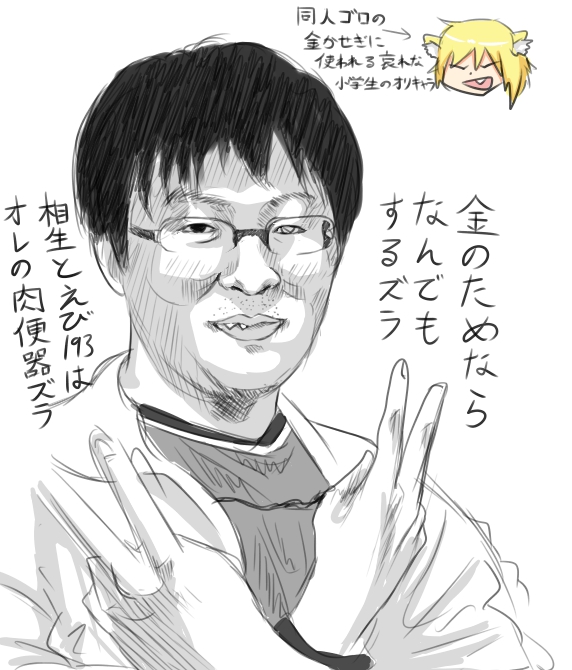 同人ゴロの
金かせぎに
使われる哀れな
小学生のオリキャラ
金のためなら
なんでも
するズラ
相生とえび193は
オレの肉便器ズラ